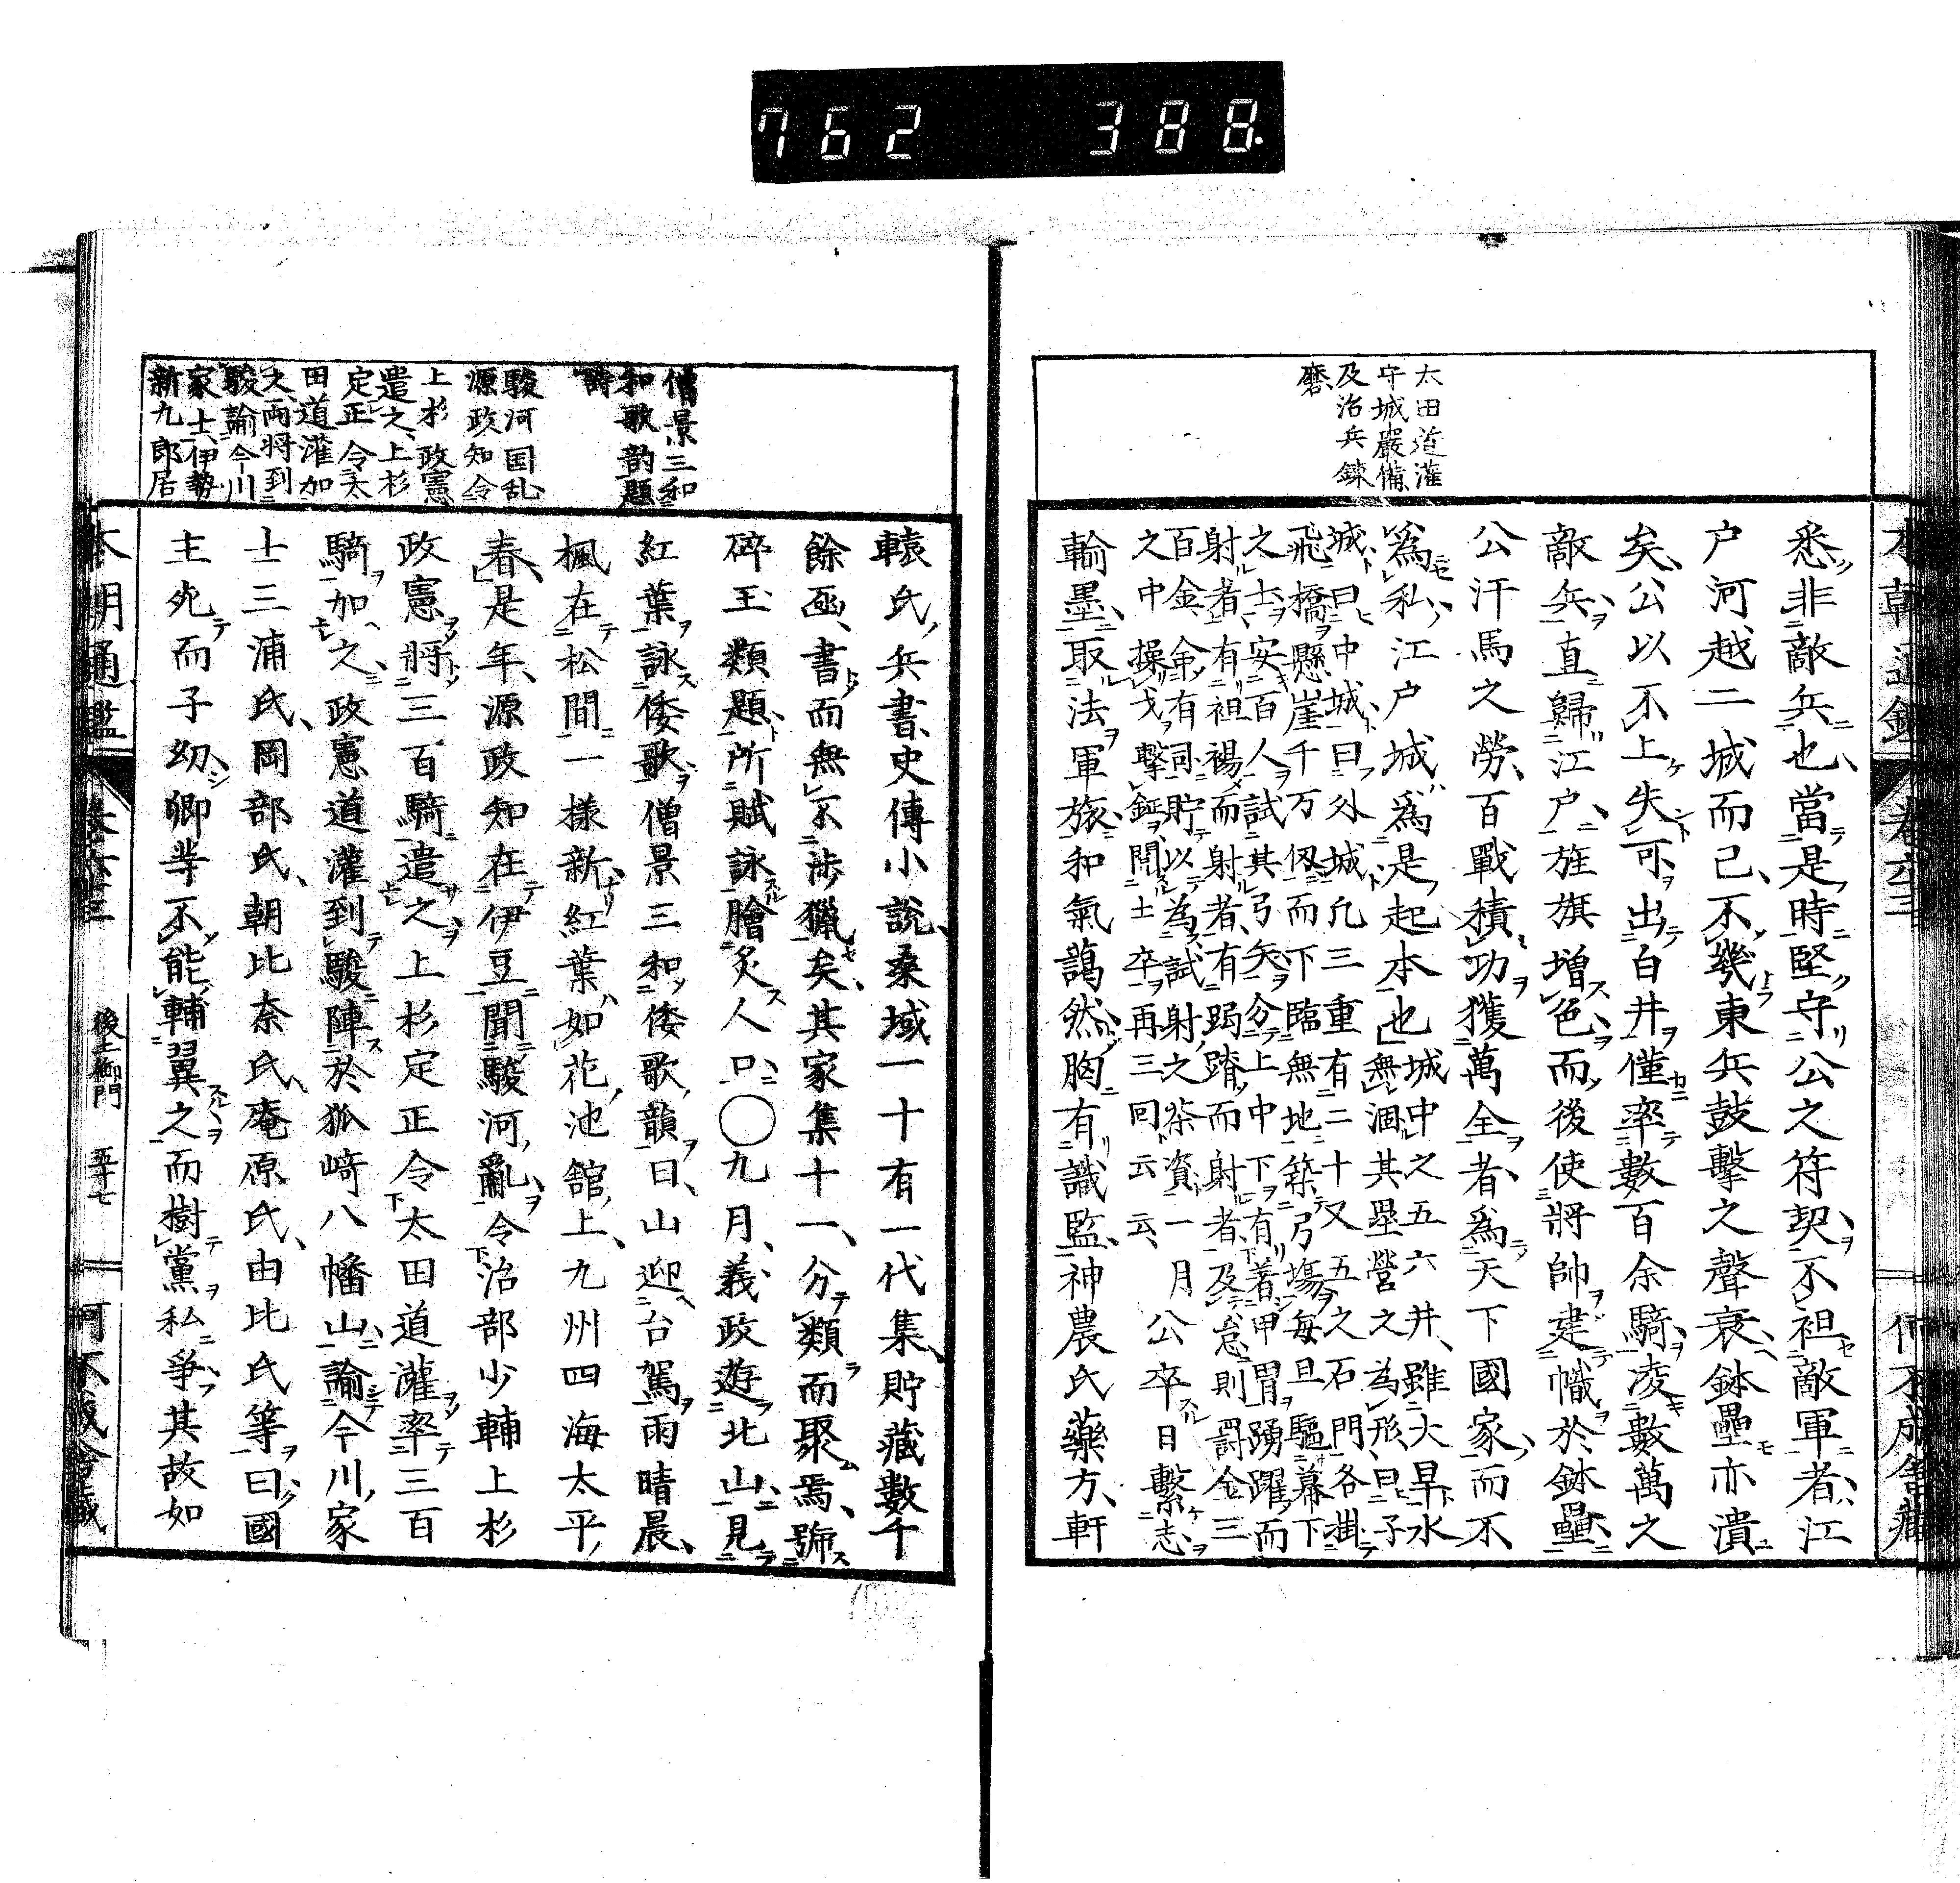 762 388
太田道灌
守城嚴備
及治兵錬
磨
悉非敵兵也當是時堅守公之符契不袒敵軍者江
户河越二城而已不幾東兵鼓擊之聲衰鉢壘亦潰
矣公以不上失可出白井僅率數百余騎凌數萬之
敵兵直歸江户旌旗增色而後使將帥建幟於鉢壘
公汗馬之勞百戰積功獲萬全者爲天下國家而不
爲私江户城爲是起本也
城中之五六井雖大旱水
無涸其壘營之為形曰子
城曰中城曰外城凡三重有二十又五之石門各掛
飛橋懸崖千万仭而下臨無地築弓塲每旦驅幕下
之士安百人試其弓矢分上中下有著甲冑踴躍而
射者有袒裼而射者有跼蹐而射者及怠則罰金三
百金金有司貯以為試射之茶資一月
之中操戈擊鉦閲士卒再三回云云
公卒日繫志
輸墨取法軍旅和氣藹然胸有識監神農氏藥方軒
轅氏兵書史傳小說桑域一十有一代集貯藏數千
餘函書而無不涉獵矣其家集十一分類而聚焉號
碎玉類題所賦詠膾炙人口○九月義政遊北山見
紅葉詠倭歌僧景三和倭歌韻曰山迎台駕雨晴晨
楓在松間一樣新紅葉如花池舘上九州四海太平
春是年源政知在伊豆聞駿河亂令治部少輔上杉
政憲將三百騎遣之上杉定正令太田道灌率三百
騎加之政憲道灌到駿陣於狐崎八幡山諭今川家
士三浦氏岡部氏朝比奈氏庵原氏由比氏等曰國
主死而子幼卿等不能輔翼之而樹黨私爭其故如
僧景三和
和歌韵題
詩
駿河国乱
源政知令
上杉政憲
遣之上杉
定正令太
田道灌加
之両将到
駿諭今川
家士伊勢
新九郎居
本朝通鑑
卷六十三
後土御門
五十七